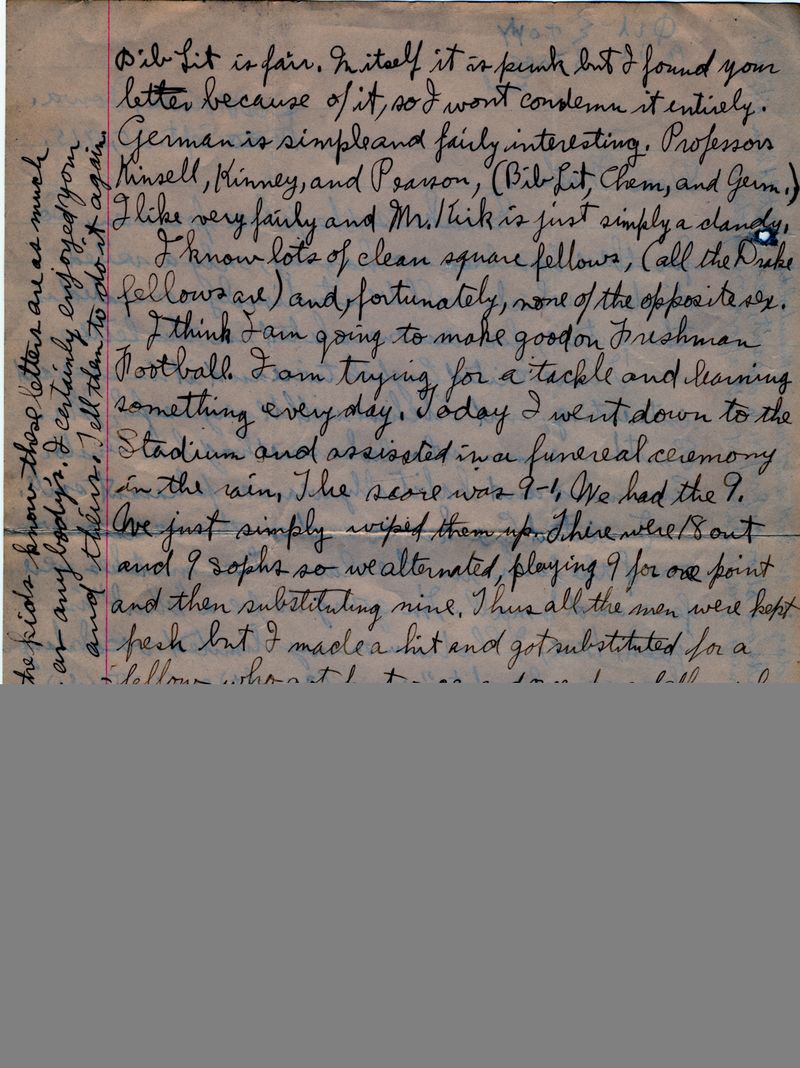 Bib Lit is fair. In itself it is punk but I found your
letter because of it, so I wont condemn it entirely.
German is simple and fairly interesting. Professors
Kinsell, Kinney, and Pearson, (Bib Lit, Chem, and Germ.)
I like very fairly and Mr. Kirk is just simply a dandy.
I know lots of clean square fellows, (all the Drake
fellows are) and, fortunately, none of the opposite sex.
I think I am going to make good on Freshman
Football. I am trying for a tackle and learning
something every day. Today I went down to the
Stadium and assissted in a funereal ceremony
in the rain. The score was 9-1. We had the 9.
We just simply wiped them up. There were 18 out
and 9 sophs so we alternated, playing 9 for one point
and then substituting nine. Thus all the men were kept
fresh but I made a hit and got substituted for a
fellow who got
the kids know those letters are as much
as any body's. I certainly enjoyed your
and theirs. Tell them to do it again.